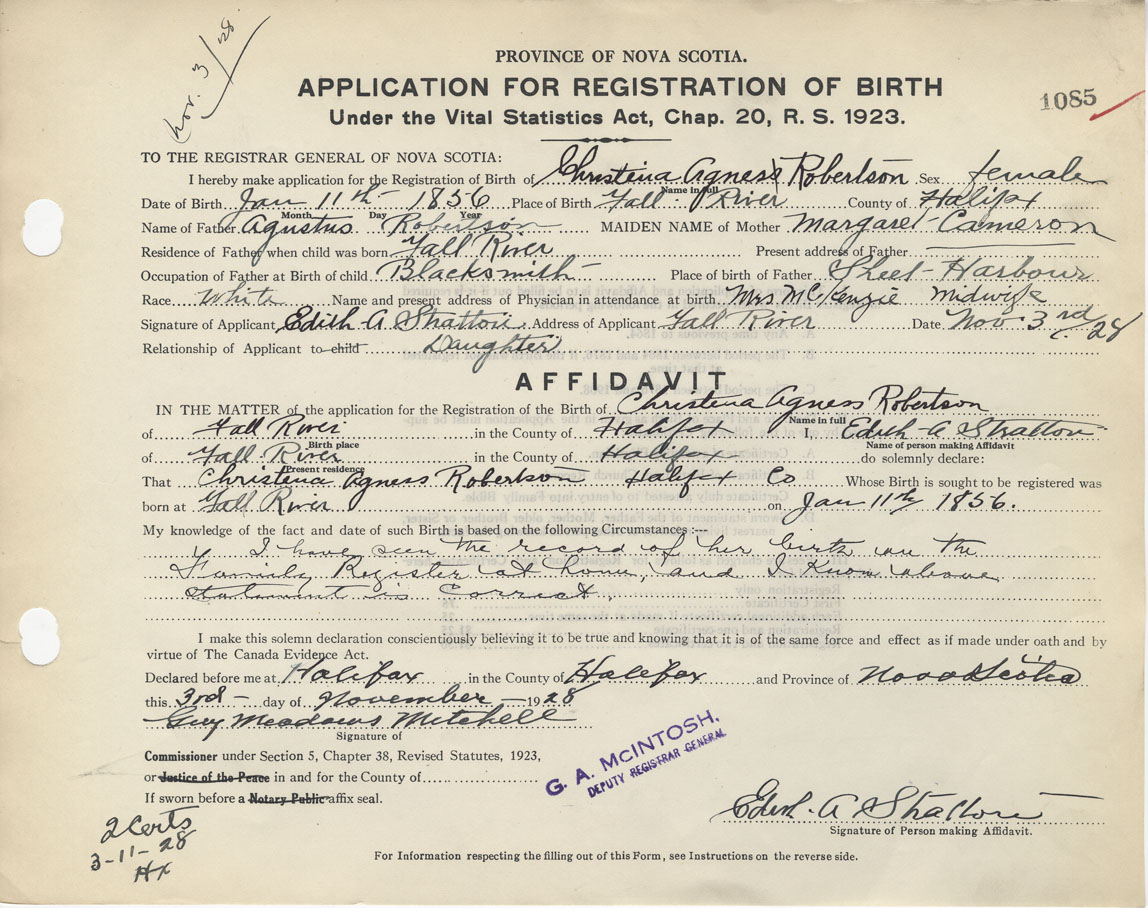 Nov. 3/28
PROVINCE OF NOVA SCOTIA.
APPLICATION FOR REGISTRATION OF BIRTH
1085
Under the Vital Statistics Act, Chap. 20, R. S. 1923.
TO THE REGISTRAR GENERAL OF NOVA SCOTIA:
I hereby make application for the Registration of Birth of Christena Agness Robertson Sex female
Name in full
Date of Birth Jan 11th 1856 Place of Birth Fall River County of Halifx
Month Day Year
Name of Father Agustus Robertson MAIDEN NAME of Mother Margaret Cameron
Residence of Father when child was born Fall River Present address of Father
Occupation of Father at Birth of child Blacksmith Place of birth of Father Sheet Harbour
Race White Name and present address of Physician in attendance at birth Mrs McKenzie Midwife
Signature of Applicant Edith A Stratton Address of Applicant Fall River Date Nov 3rd 28
Relationship of Applicant to child Daughter
AFFIDAVIT
IN THE MATTER of the application for the Registration of the Birth of Christena Agness Robertson
Name in full
of Fall River in the County of Halifax I, Edith A Stratton
Birth place Name of person making Affidavit
of Fall River in the County of Halifax do solemnly declare:
Present residence
That Christena Agness Robertson Halifax Co Whose Birth is sought to be registered was
born at Fall River on Jan 11th 1856.
My knowledge of the fact and date of such Birth is based on the following Circumstances :—
I have seen the record of her birth in the
Family Register at home, and I know above
statement is Correct.
I make this solemn declaration conscientiously believing it to be true and knowing that it is of the same force and effect as if made under oath and by
virtue of The Canada Evidence Act.
Declared before me at Halifax in the County of Halifax and Province of Nova Scotia
this 3rd day of November 1928
Guy Meadows Mitchell
Signature of
Commissioner under Section 5, Chapter 38, Revised Statutes, 1923,
or Justice of the Peace in and for the County of
If sworn before a Notary Public affix seal.
G. A. MCINTOSH,
DEPUTY REGISTRAR GENERAL
Edith A Stratton
Signature of Person making Affidavit.
2 Certs
3-11-28
Hx
For Information respecting the filling out of this Form, see Instructions on the reverse side.